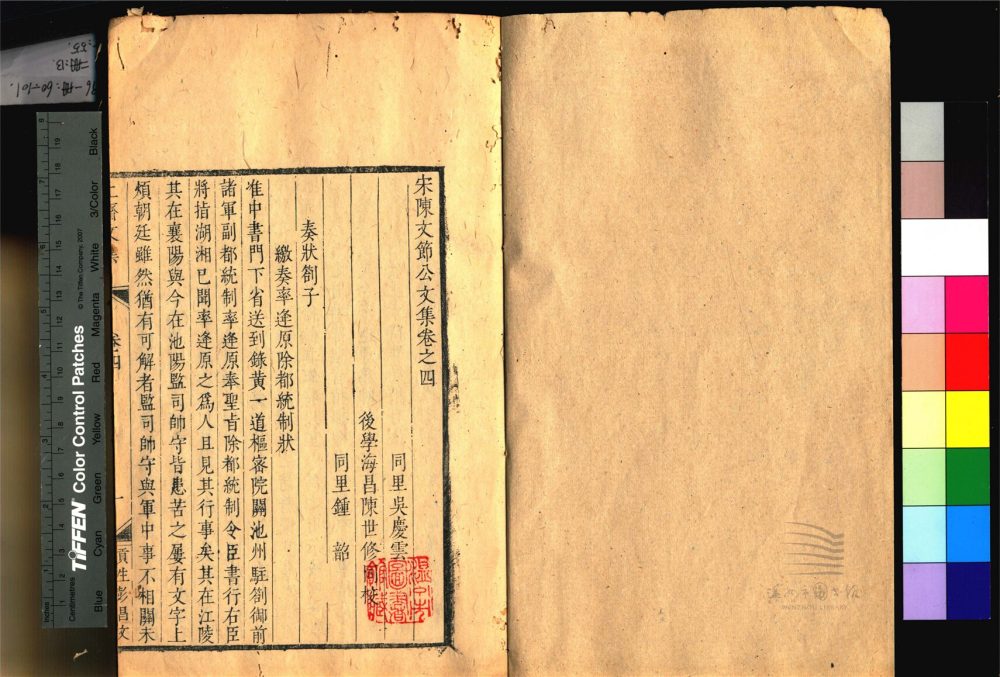 宋陳文節公文集卷之四
同里吳慶雲
後學海昌陳世修
同里鍾　韶
校
奏狀劄子
繳奏率逢原除都統制狀
准中書門下省送到錄黃一道樞密院關池州駐劄御前
諸軍副都統制率逢原奉聖旨除都統制令臣書行右臣
將指湖湘已聞率逢原之爲人且見其行事矣其在江陵
其在襄陽與今在池陽監司帥守皆患苦之屢有文字上
煩朝廷雖然猶有可解者監司帥守與軍中事不相關未
止齋文集
卷四
一
貢生彭昌文
温州市圖書館
WENZHOU LIBRARY
一册:13.
一册:60-101.
Inches
Centimetres
TIFFEN Color Control Patches
© The Tiffen Company, 2007
Blue
Cyan
Green
Yellow
Red
Magenta
White
3/Color
Black